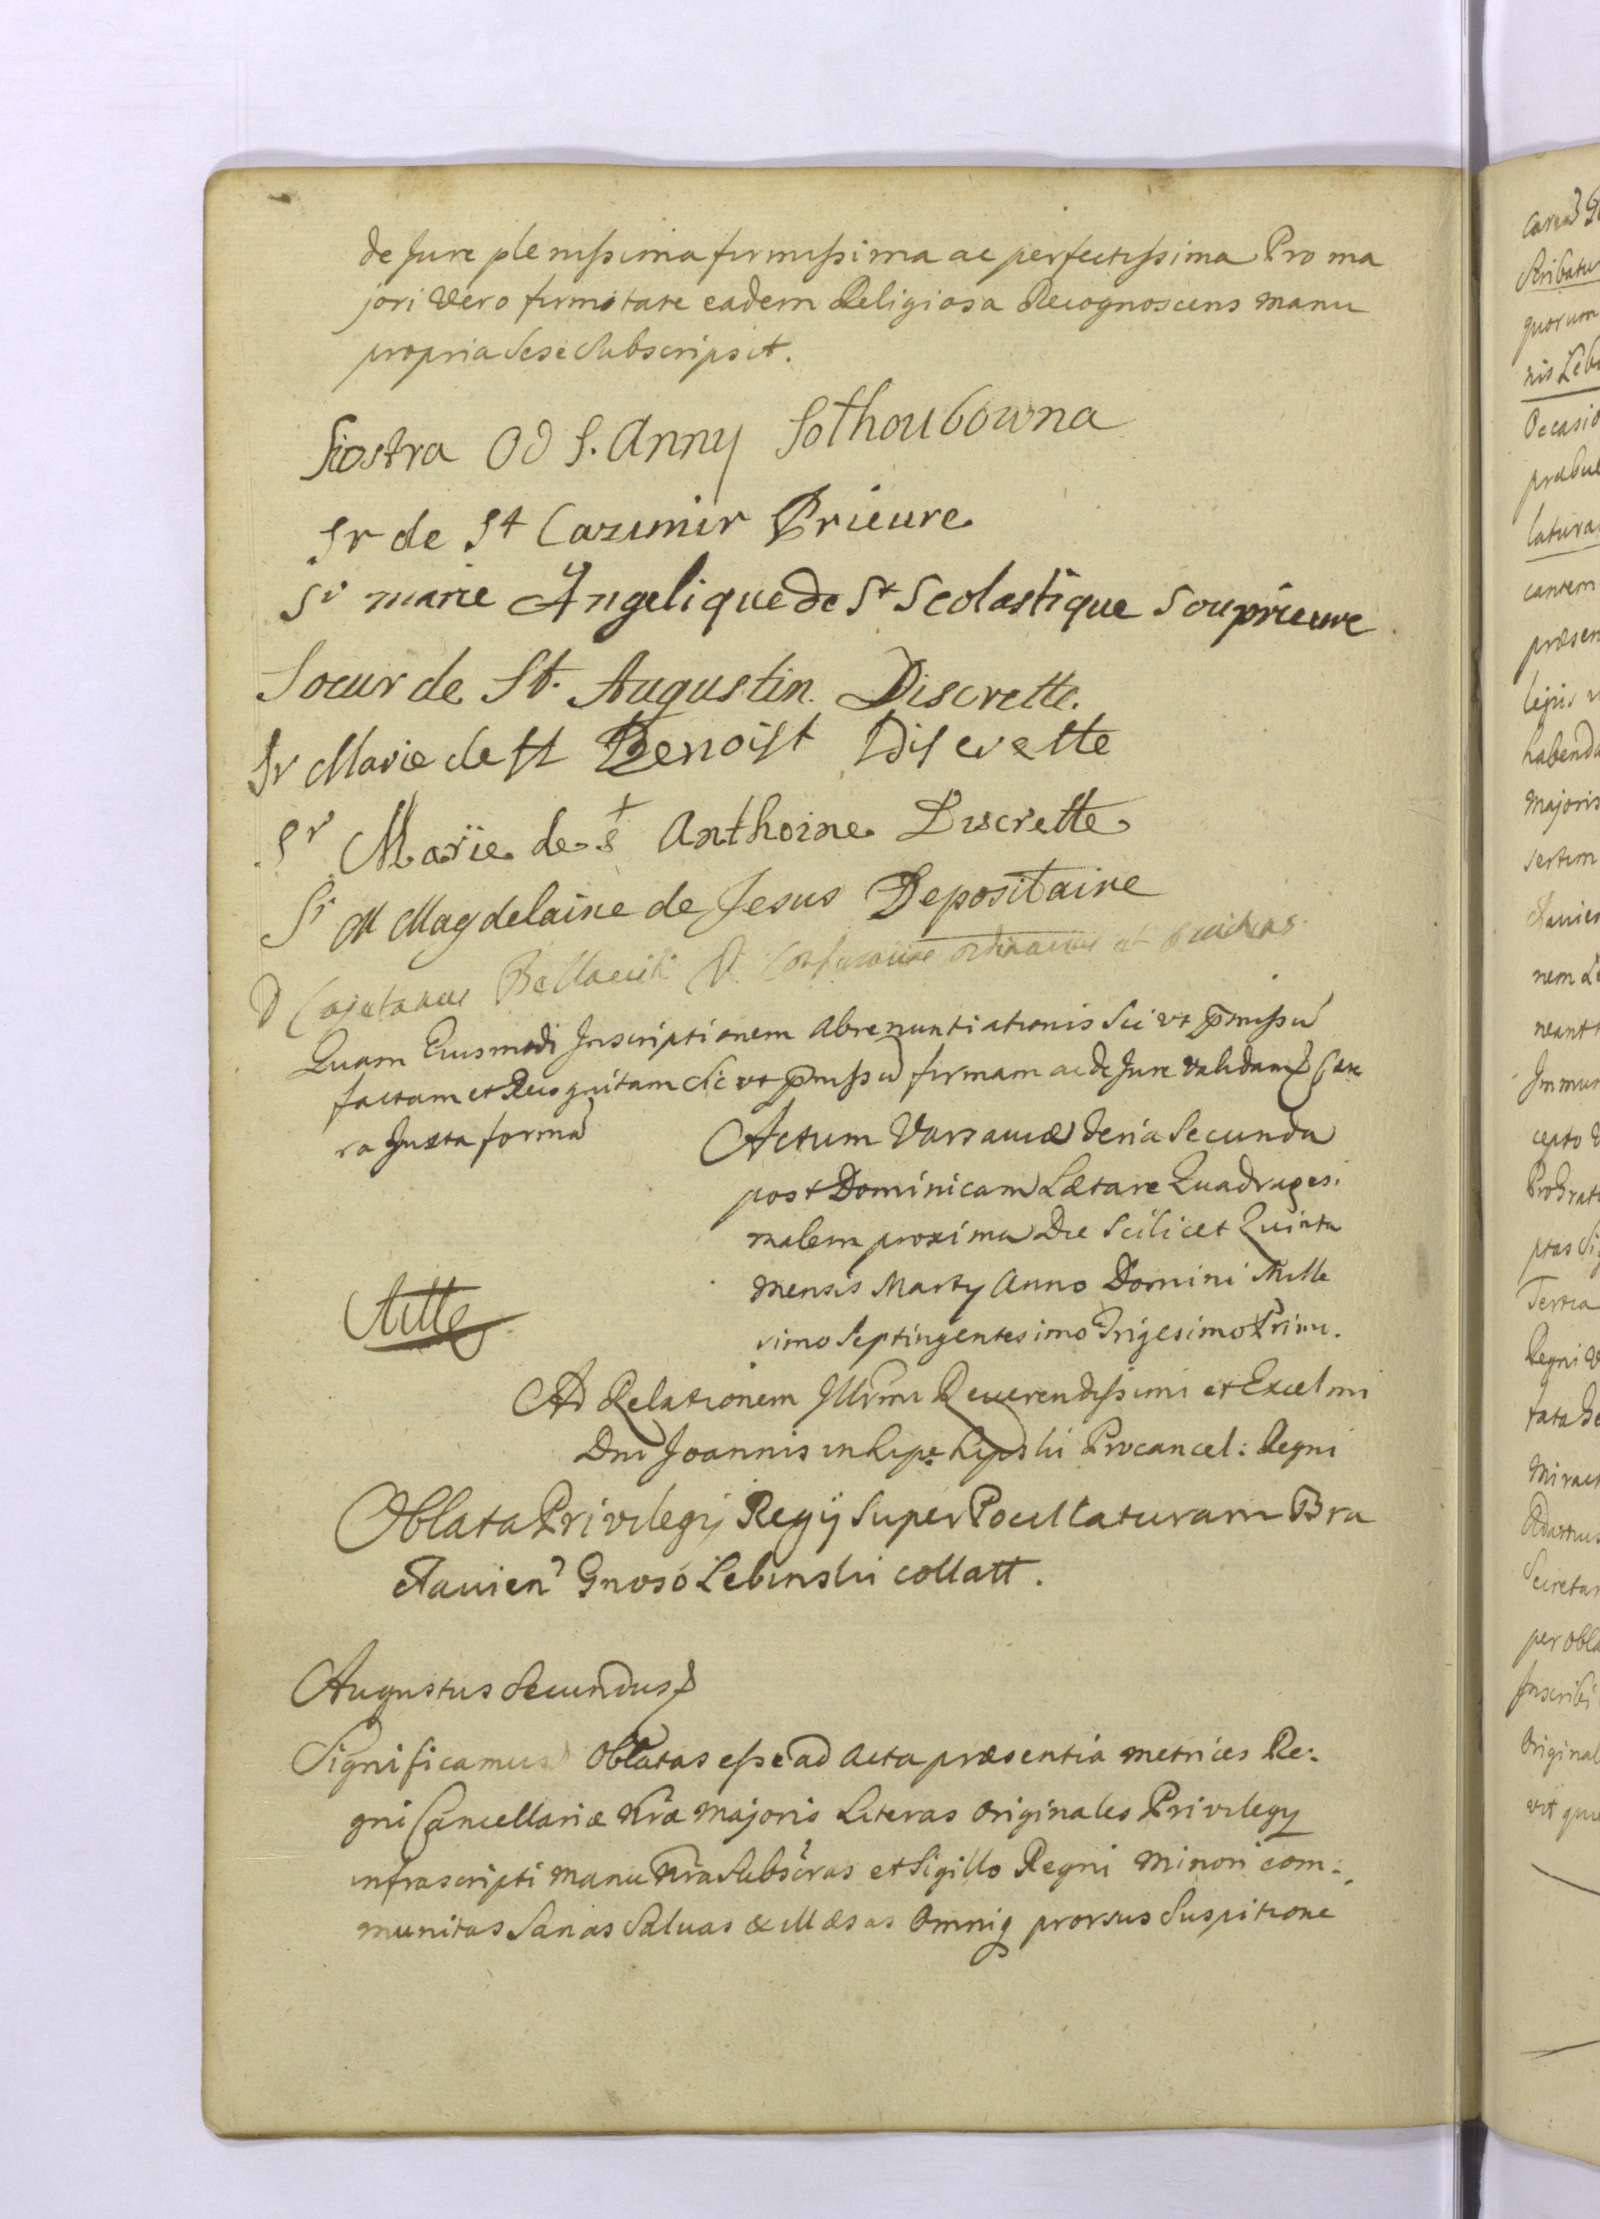 de Jure plenissima firmissima ac perfectissima Pro ma
jori vero firmitate eadem Religiosa Recognoscens manu
propria sese subscripsit.
Siostra Od S. Anny Sothoubowna
Sr de St Cazimir Prieure
Sr marie Angelique de St Scolastique Souprieure
Soeur de St. Augustin Discrette.
Sr Marie de st Benoist Discrette
Sr Marïe de st Anthoine Discrette
Sr M Magdelaine de Jesus Depositaire
D Cajetanus ordinarius et
Quam Eiusmodi Inscriptionem Abrenuntiationis Sic ut pmissu
factam et Recognitam Sic ut pmissu firmam ac de Jure validam Cæte
ra Juxta forma
Actum Varsaviæ Feria Secunda
post Dominicam Lætare Quadragesi
malem proxima Die Scilicet Quinta
mensis Marty Anno Domini Mille
simo Septingentesimo Trigesimo Primo.
Ad Relationem Illrmi Reverendissimi et Excelmi
Dni Joannis in Lipe Lipski Procancel: Regni
Oblata Privilegij Regij super Pocillaturam Bra
clavien Gnoso Lebinski collatt.
Augustus Secundus
Significamus Oblatas esse ad Acta præsentia metrices Re:
gni Cancellariæ Nræ Majoris Literas Originales Privilegy
infrascripti manu Nra Subscras et Sigillo Regni Minori com:
munitas Sanas Salvas & illæsas Omniq prorsus Suspitione
quorum
cantem
cepto
Tertia
Regni